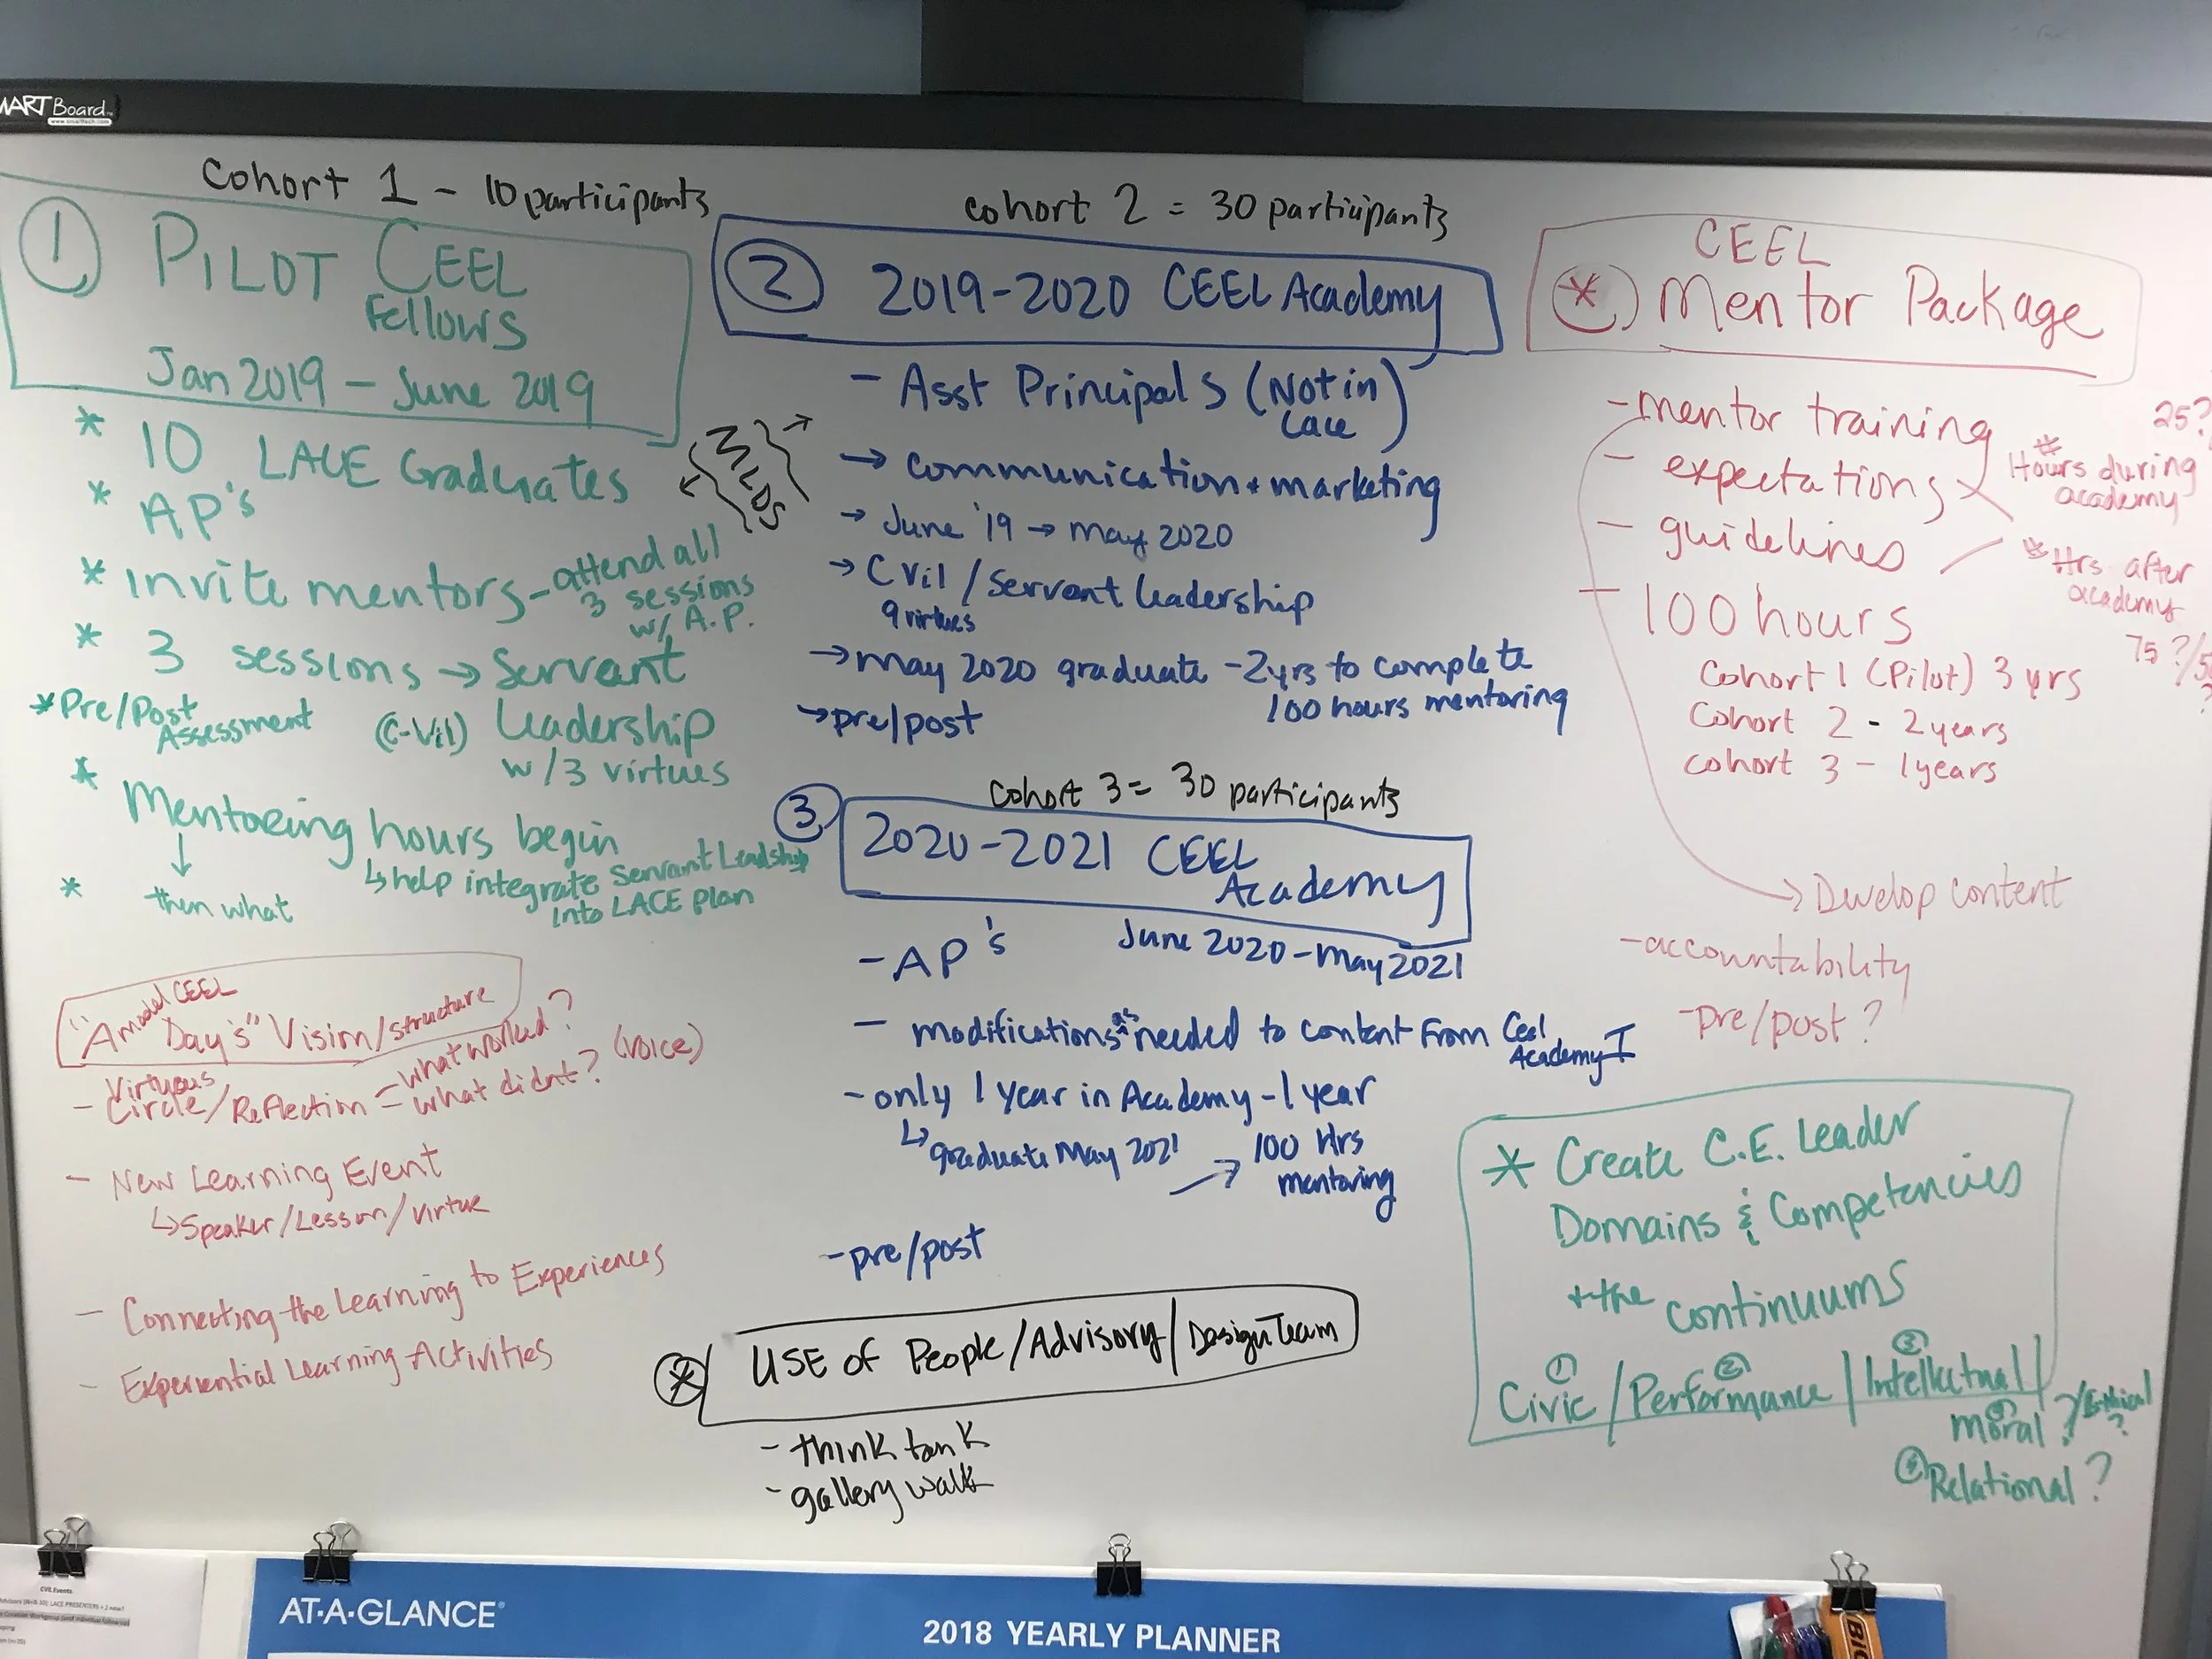 SMART Board
www.smarttech.com
Cohort 1 - 10 participants
① PILOT CEEL
Fellows
Jan 2019 - June 2019
* 10 LACE Graduates
* AP's
* invite mentors - attend all
3 sessions
w/ A.P.
* 3 sessions → Servant
(C-Vil) Leadership
w/ 3 virtues
* Pre/Post
Assessment
* Mentoring hours begin
↳ help integrate Servant Leadship
into LACE plan
↓
* then what
← MLDS →
"A model CEEL
Day's" Vision/structure
- Virtuous
Circle/Reflection = what worked?
what didnt? (voice)
- New Learning Event
↳ Speaker/Lesson/virtue
- Connecting the Learning to Experiences
- Experiential Learning Activities
cohort 2 = 30 participants
② 2019-2020 CEEL Academy
- Asst Principals (Not in
Lace)
→ communication + marketing
→ June '19 → May 2020
→ CVil / Servant Leadership
9 virtues
→ May 2020 graduate - 2yrs to complete
100 hours mentoring
→ pre/post
cohort 3 = 30 participants
③ 2020-2021 CEEL
Academy
June 2020 - May 2021
- AP's
- modifications as needed to content from Ceel
Academy I
- only 1 year in Academy - 1 year
↳ graduate May 2021 → 100 Hrs
mentoring
- pre/post
* USE of People/Advisory/Design Team
- think tank
- gallery walk
CEEL
* Mentor Package
- mentor training
- expectations
- guidelines
25?
* Hours during
academy
* Hrs after
academy
75?/
- 100 hours
Cohort 1 (Pilot) 3 yrs
Cohort 2 - 2 years
cohort 3 - 1 years
→ Develop content
- accountability
- pre/post?
* Create C.E. Leader
Domains & Competencies
+ the continuums
① ② ③
Civic / Performance / Intellectual /
④ moral? / Ethical
?
④ Relational?
CVIL Events
AT-A-GLANCE®
2018 YEARLY PLANNER
BIC